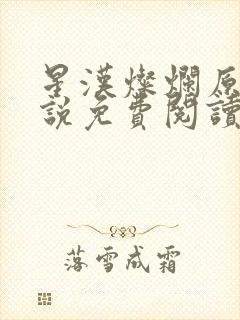 星漢燦爛原
說免費閱讀
落雪成霜